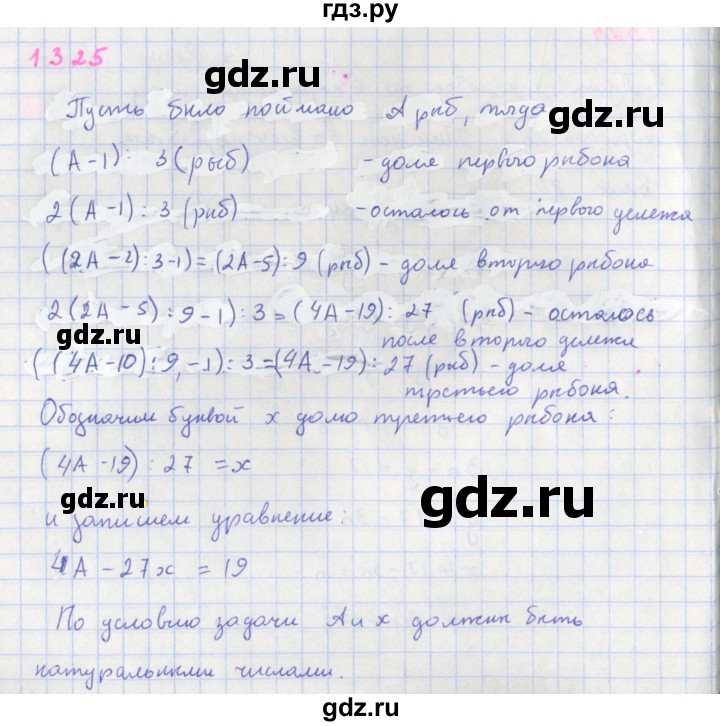 гдз.ру
1325
gdz.ru
Пусть было поймано A рыб, тогда
gdz.ru
(A-1): 3 (рыб) - доля первого рыбока
2(A-1):3 (рыб) - осталось от первого дележа
((2A-2):3-1)=(2A-5):9 (рыб) - доля второго рыбока
2(2A-5):9-1):3=(4A-19): 27 (рыб) - осталось
после второго дележа
((4A-10):9-1):3=(4A-19):27 (рыб) - доля
третьего рыбока.
gdz.ru gdz.ru
Обозначим буквой x долю третьего рыбока:
(4A-19):27 =x
gdz.ru gdz.ru
и запишем уравнение:
4A-27x = 19
По условию задачи A и x должны быть
натуральными числами.
gdz.ru